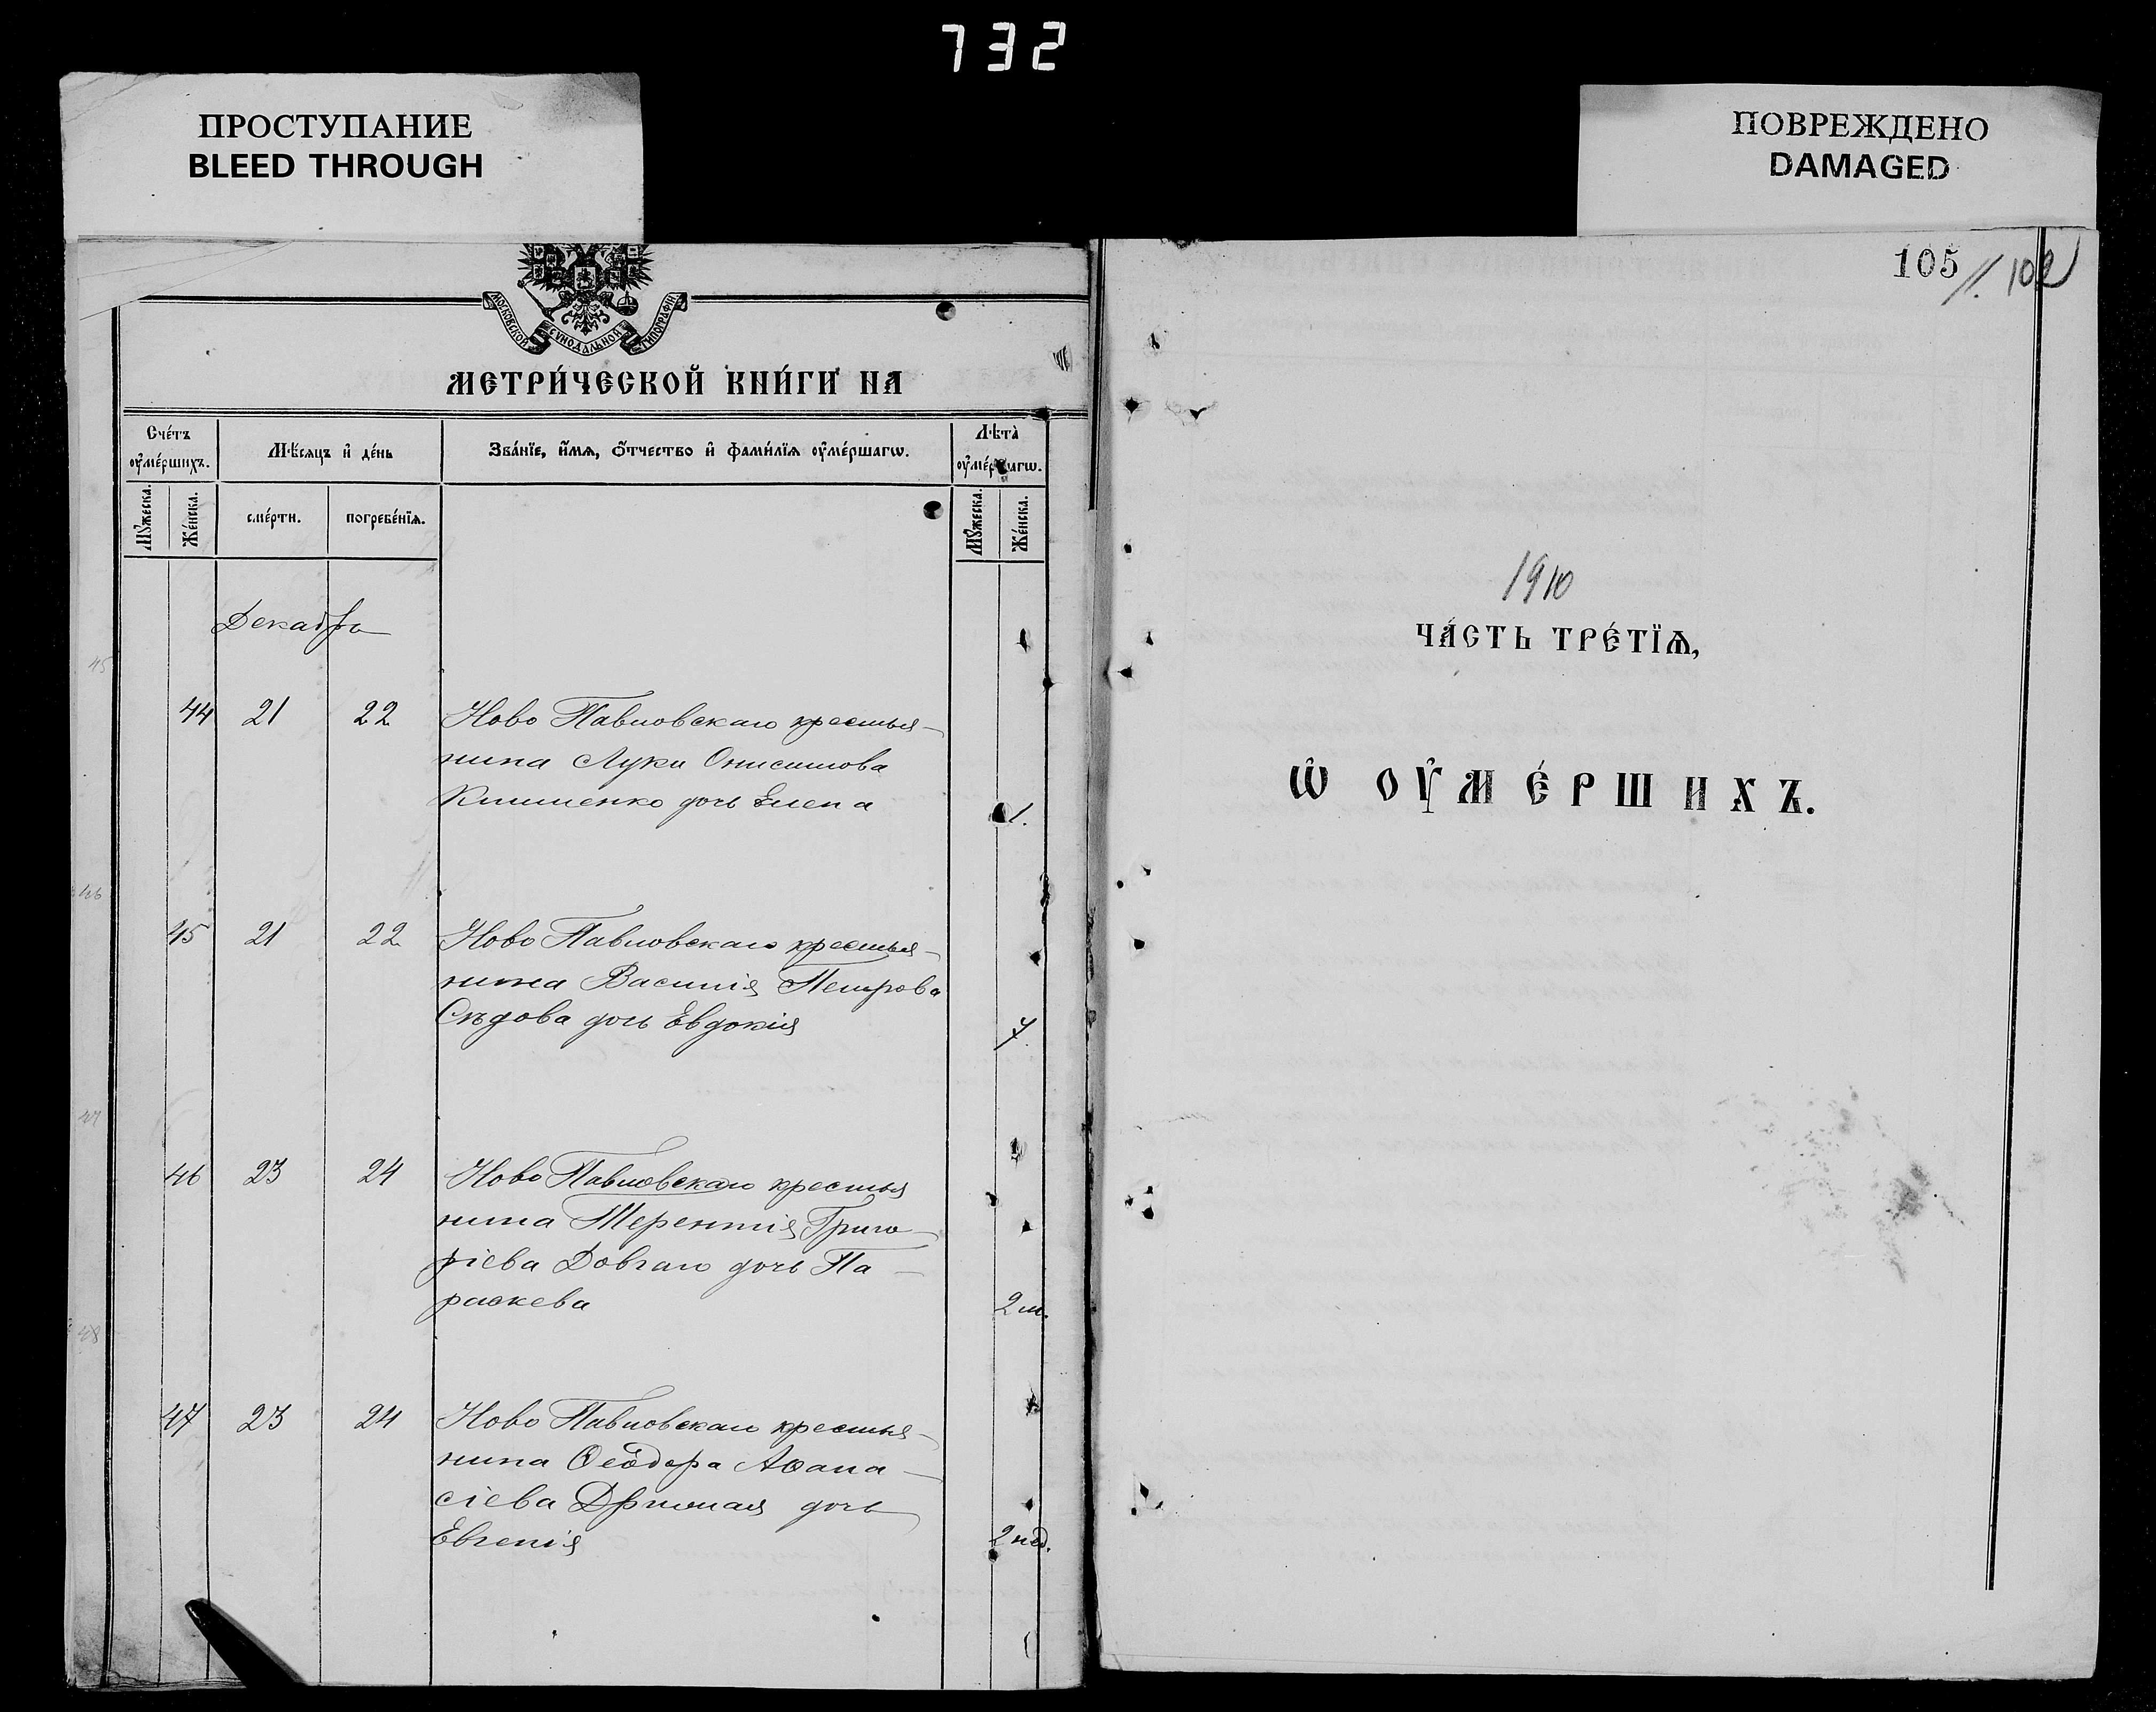 732
ПРОСТУПАНИЕ
BLEED THROUGH
ПОВРЕЖДЕНО
DAMAGED
МОСКОВСКОЙ СѴНОДАЛЬНОЙ ТИПОГРАФІИ
МЕТРИ́ЧЕСКОЙ КНИ́ГИ НА
Сче́тъ оу҆ме́ршихъ.
Мѣ́сяцъ и҆ де́нь
Зва́нїе, и҆́мѧ, ѻ҆́тчество и҆ фами́лїѧ оу҆ме́ршагѡ.
Лѣ̀та оу҆ме́ршагѡ.
Мꙋ́жеска.
Же́нска.
сме́рти.
погребе́нїѧ.
Мꙋ́жеска.
Же́нска.
Декабрь
44 21 22 Ново Павловскаго крестья-
нина Луки Онисимова
Клименко дочь Елена 1.
45 21 22 Ново Павловскаго крестья-
нина Василія Петрова
Сѣдова дочь Евдокія 7
46 23 24 Ново Павловскаго крестья
нина Терентія Григо-
ріева Довгаго дочь Па-
раскева 2 м.
47 23 24 Ново Павловскаго крестья-
нина Ѳеодора Аѳана-
сіева дочь
Евгенія 2 нед.
45
46
47
48
105
102
1910
ЧА́СТЬ ТРЕ́ТЇѦ,
Ѡ҆ ОУ҆МЕ́РШИХЪ.